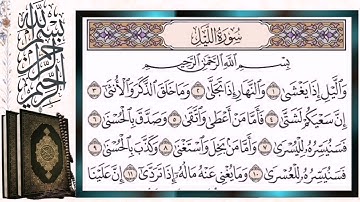 سُورَةُ اللَّيْلِ
بِسْمِ اللَّهِ الرَّحْمَٰنِ الرَّحِيمِ
وَاللَّيْلِ إِذَا يَغْشَىٰ ١ وَالنَّهَارِ إِذَا تَجَلَّىٰ ٢ وَمَا خَلَقَ الذَّكَرَ وَالْأُنثَىٰ ٣
إِنَّ سَعْيَكُمْ لَشَتَّىٰ ٤ فَأَمَّا مَنْ أَعْطَىٰ وَاتَّقَىٰ ٥ وَصَدَّقَ بِالْحُسْنَىٰ ٦
فَسَنُيَسِّرُهُ لِلْيُسْرَىٰ ٧ وَأَمَّا مَن بَخِلَ وَاسْتَغْنَىٰ ٨ وَكَذَّبَ بِالْحُسْنَىٰ ٩
فَسَنُيَسِّرُهُ لِلْعُسْرَىٰ ١٠ وَمَا يُغْنِي عَنْهُ مَالُهُ إِذَا تَرَدَّىٰ ١١ إِنَّ عَلَيْنَا
بسم الله الرحمن الرحيم